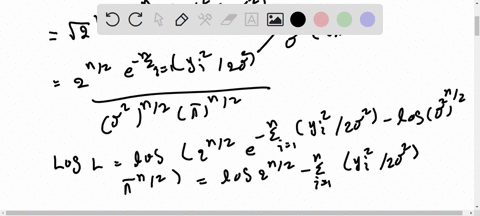 = √2 n/2
= 2^{n/2} e^{-Σ_{i=1}^{n} (y_i²/2σ²)}
(σ²)^{n/2} (π)^{n/2}
Log L = log (2^{n/2} e^{-Σ_{i=1}^{n} (y_i²/2σ²)} - log(σ²)^{n/2}
π^{n/2}) = log 2^{n/2} - Σ_{i=1}^{n} (y_i²/2σ²)